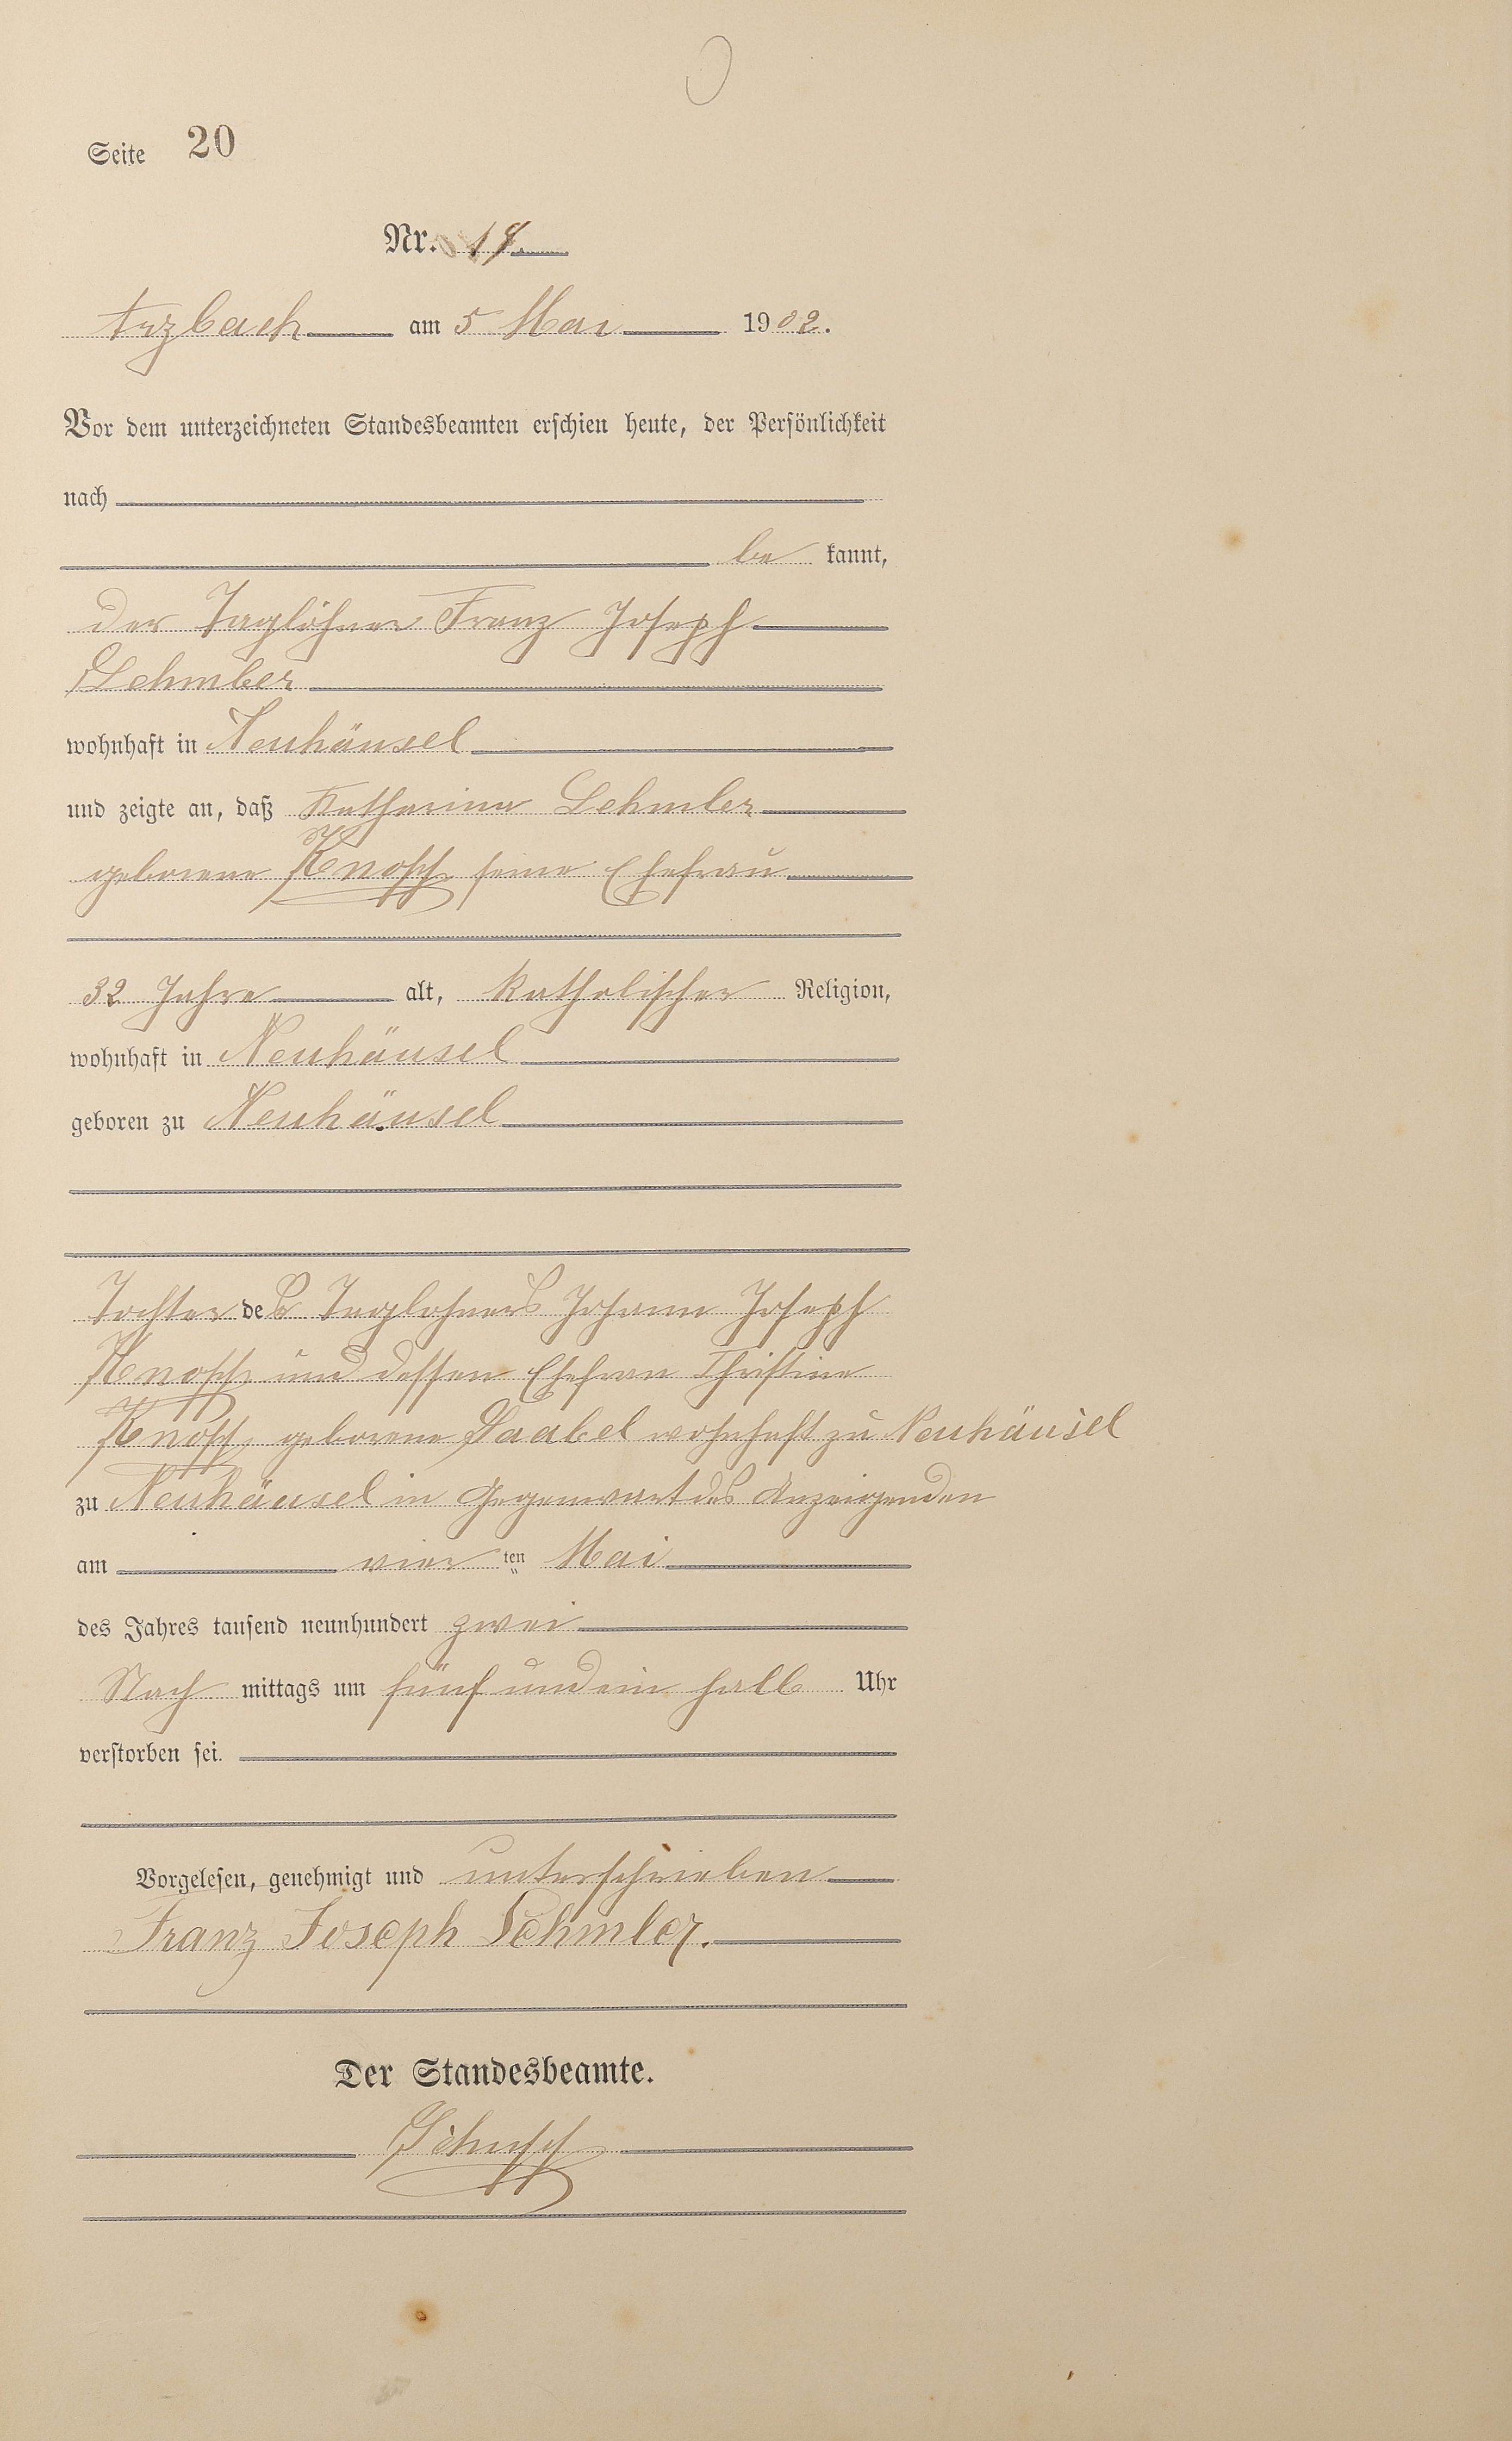 Seite 20
Nr. 18.
Arzbach am 5 Mai 1902.
Vor dem unterzeichneten Standesbeamten erschien heute, der Persönlichkeit
nach
be kannt,
der Taglöhner Franz Joseph
Lehmler
wohnhaft in Neuhäusel
und zeigte an, daß Katharina Lehmler
geborene Knopp seine Ehefrau
32 Jahre alt, katholischer Religion,
wohnhaft in Neuhäusel
geboren zu Neuhäusel
Tochter des Taglohners Johann Joseph
Knopp und dessen Ehefrau Christine
Knopp, geborene Saabel wohnhaft zu Neuhäusel
zu Neuhäusel in Gegenwart des Anzeigenden
am vier ten Mai
des Jahres tausend neunhundert zwei
Nach mittags um fünf und ein halb Uhr
verstorben sei.
Vorgelesen, genehmigt und unterschrieben
Franz Joseph Lehmler.
Der Standesbeamte.
Schupp